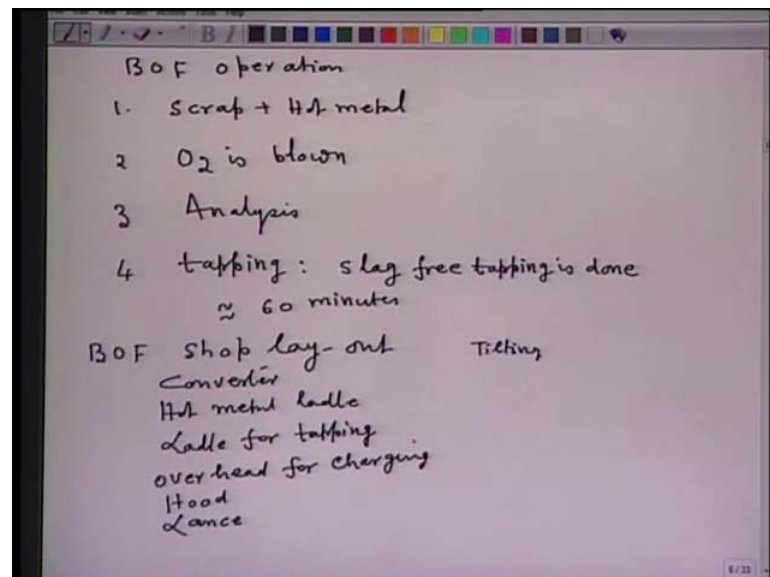 BOF operation
1. Scrap + Hot metal
2 O2 is blown
3 Analysis
4 tapping : slag free tapping is done
≈ 60 minutes
BOF shop lay-out Tilting
Converter
Hot metal ladle
Ladle for tapping
overhead for charging
Hood
Lance
6/33